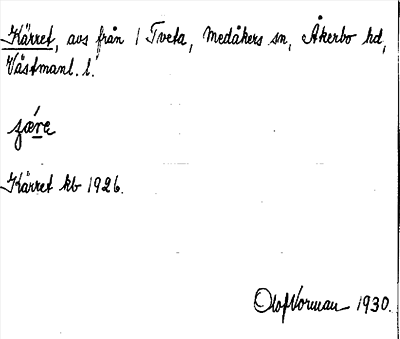 Kärret, avs från 1 Tveta, Medåkers sn, Åkerbo hd,
Västmanl. l.
Kärret kb 1926.
Olof Norman 1930.